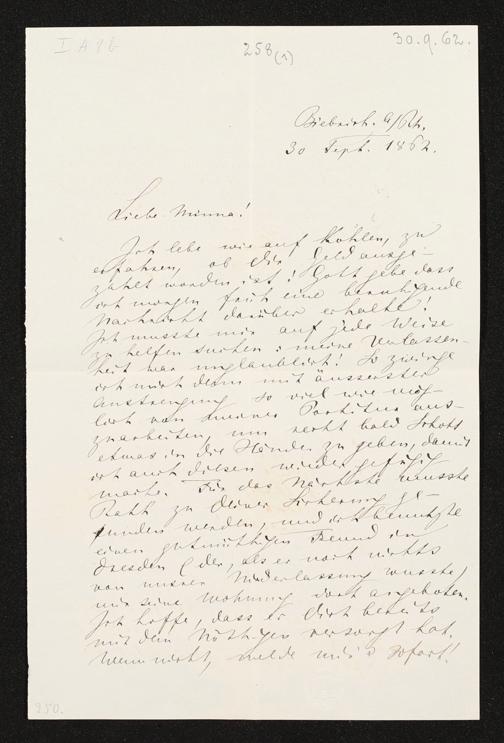 I A 9 b
258 (1)
30.9.62.
Biebrich. a/Rh.
30 Sept. 1862.
Liebe Minna!
Ich lebe wie auf Kohlen, zu
erfahren, ob Dir Geld ausge-
zahlt worden ist! Gott gebe dass
ich morgen früh eine beruhigende
Nachricht darüber erhalte!
Ich musste mir auf jede Weise
zu helfen suchen: meine Verlassen-
heit war unglaublich! So zwinge
ich mich denn mit äusserster
Anstrengung so viel wie mög-
lich von meiner Partitur aus-
zuarbeiten, um recht bald Schott
etwas in die Hände zu geben, damit
ich auch diesen wieder gefügig
mache. Für das Nächste musste
Rath zu Deiner Sicherung ge-
funden werden, und ich benutzte
einen gutmüthigen Freund in
Dresden (der, als er noch nichts
von unsrer Niederlassung wusste,)
mir seine Wohnung dort angeboten.
Ich hoffe, dass er Dich bereits
mit dem Nöthigen versorgt hat.
Wenn nicht, melde mir's sofort!
950.